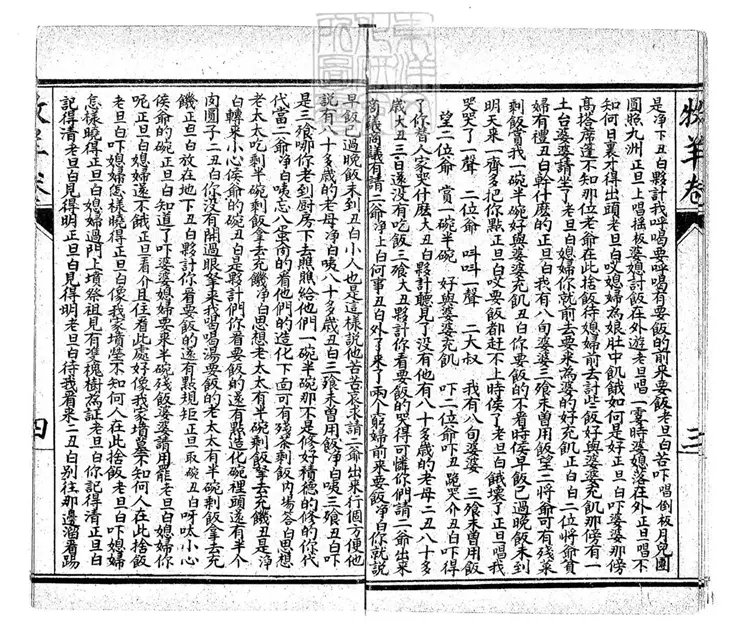 牧羊卷
三
是净下丑白夥計我呼喝要呼喝有要飯的前來要飯老旦白苦吓唱倒板月兒團
圓照九洲正旦上唱摇板婆媳討飯在外遊老旦唱一霎時婆媳落在外正旦唱不
知何日裏才得出頭老旦白哎媳婦為娘肚中飢餓如何是好正旦白吓婆婆那傍
高搭蓆蓬不知那位老爺在此捨飯待媳婦前去討些飯好與婆婆充飢那傍有一
土台婆婆請坐了老旦白媳婦你就前去要來為婆的好充飢正白白二位將爺貧
婦有禮丑白幹什麽的正旦白我有八旬婆婆三飱未曾用飯望二將爺可有殘菜
剩飯賞我一碗半碗好與婆婆充飢丑白你要飯的不看時侯早飯已過晚飯未到
明天來一齊多把你點正旦白哎要飯都赶不上時侯了老旦白餓壞了正旦唱我
哭哭了一聲 二位爺 叫叫一聲 二大叔 我有八旬婆婆 三飱未曾用飯
望二位爺 賞一碗半碗 好與婆婆充飢 吓二位爺吓丑 跪哭介丑白吓得
了你當人家哭什麽大丑白夥計聽見了没有他有八十多歲的老母二丑八十多
歲大丑三日還没有吃飯三飱大丑夥計你看要飯的哭得可憐你們請二爺出來
商議商議有請二爺净上白何事丑白外了來了兩个窮婦前來要飯净白你就説
早飯已過晚飯未到丑白小人也是這樣説他苦苦哀求請二爺出來行個方便他
説有八十多歲的老母净白咦八十多歲丑白三飱未曾用飯净白咦三飱丑白吓
是三飱哪你老到厨房下去照照給他們一碗半碗那不是修好積德的修的你代
代當二爺净白咦忘八蛋向的看他們的造化下面可有殘茶剩飯内塲答白思想
老太太吃剩半碗剩飯拿去充饑净白思想老太太有半碗剩飯拏去充饑丑是净
白轉來小心侯爺的碗丑白是夥計們你看要飯的還有點造化碗裡頭還有半个
肉圓子二丑白你没有開過眼拏來我喝喝湯要飯的老太太有半碗剩飯拿去充
饑正旦白放在地下丑白夥計你看要飯的還有點規矩正旦取碗丑白呀呔小心
侯爺的碗正旦白知道了吓婆婆媳婦要來半碗殘飯婆婆請用罷老旦白媳婦你
呢正旦白媳婦還不餓正旦看介且住看此處好像我家墳塋不知何人在此捨飯
老旦白吓媳婦怎樣曉得正旦白像我家墳塋不知何人在此捨飯老旦白吓媳婦
怎樣曉得正旦白媳婦過門上墳祭祖見有雙槐樹為証老旦白你記得清正旦白
記得清老旦白見得明正旦白見得明老旦白待我看來二丑白别往那邊溜看踢
四